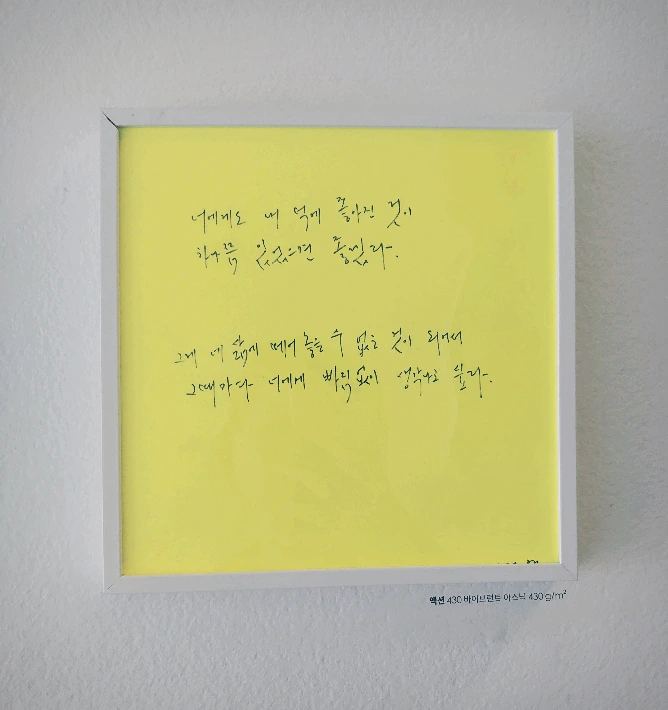 너에게도 내 덕에 좋아진 것이
하나쯤 있었으면 좋겠다.
그게 네 삶에 떼어 놓을 수 없는 것이 되어서
그때마다 너에게 빠짐없이 생각나고 싶다.
액션 430 바이브런트 아스닉 430 g/m²